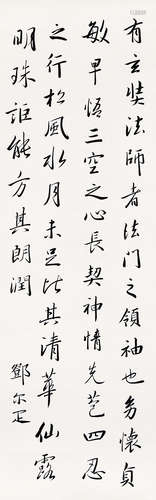 有玄奘法師者法門之領袖也勿懷貞
敏早悟三空之心長契神情先苞四忍
之行松風水月未足比其清華仙露
明珠詎能方其朗潤
鄧尔疋